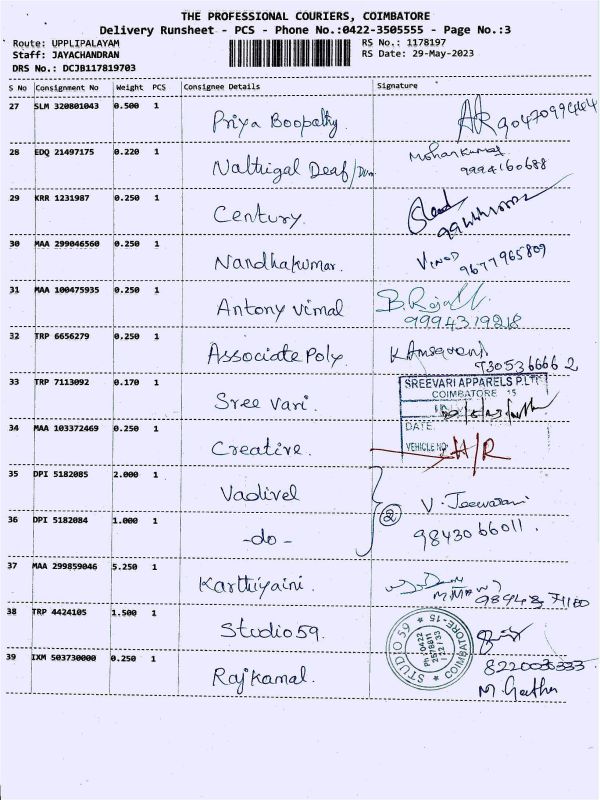 THE PROFESSIONAL COURIERS, COIMBATORE
Delivery Runsheet - PCS - Phone No.:0422-3505555 - Page No.:3
Route: UPPLIPALAYAM RS No.: 1178197
Staff: JAYACHANDRAN RS Date: 29-May-2023
DRS No.: DCJB117819703
S No Consignment No Weight PCS Consignee Details Signature
27 SLM 320801043 0.500 1 Priya Boopathy
28 EDQ 21497175 0.220 1 Naltrigal Deaf/Dum Mohankumar
9994160688
29 KRR 1231987 0.250 1 Century.
30 MAA 299046560 0.250 1 Nandhakumar. Vinod
9677965809
31 MAA 100475935 0.250 1 Antony vimal
9994319218
32 TRP 6656279 0.250 1 Associate Poly.
9305366662
33 TRP 7113092 0.170 1 Sree vari. SREEVARI APPARELS P.LTD
COIMBATORE 15
34 MAA 103372469 0.250 1 Creative. DATE:
VEHICLE NO: H/R
35 DPI 5182085 2.000 1 Vadivel
36 DPI 5182084 1.000 1 -do- 2 V. Jeevarani
9843066011.
37 MAA 299859046 5.250 1 Karthiyaini
38 TRP 4424105 1.500 1 Studio 59. STUDIO 59 COIMBATORE-15
39 IXM 503730000 0.250 1 Rajkamal. 8220036333
M. Geetha